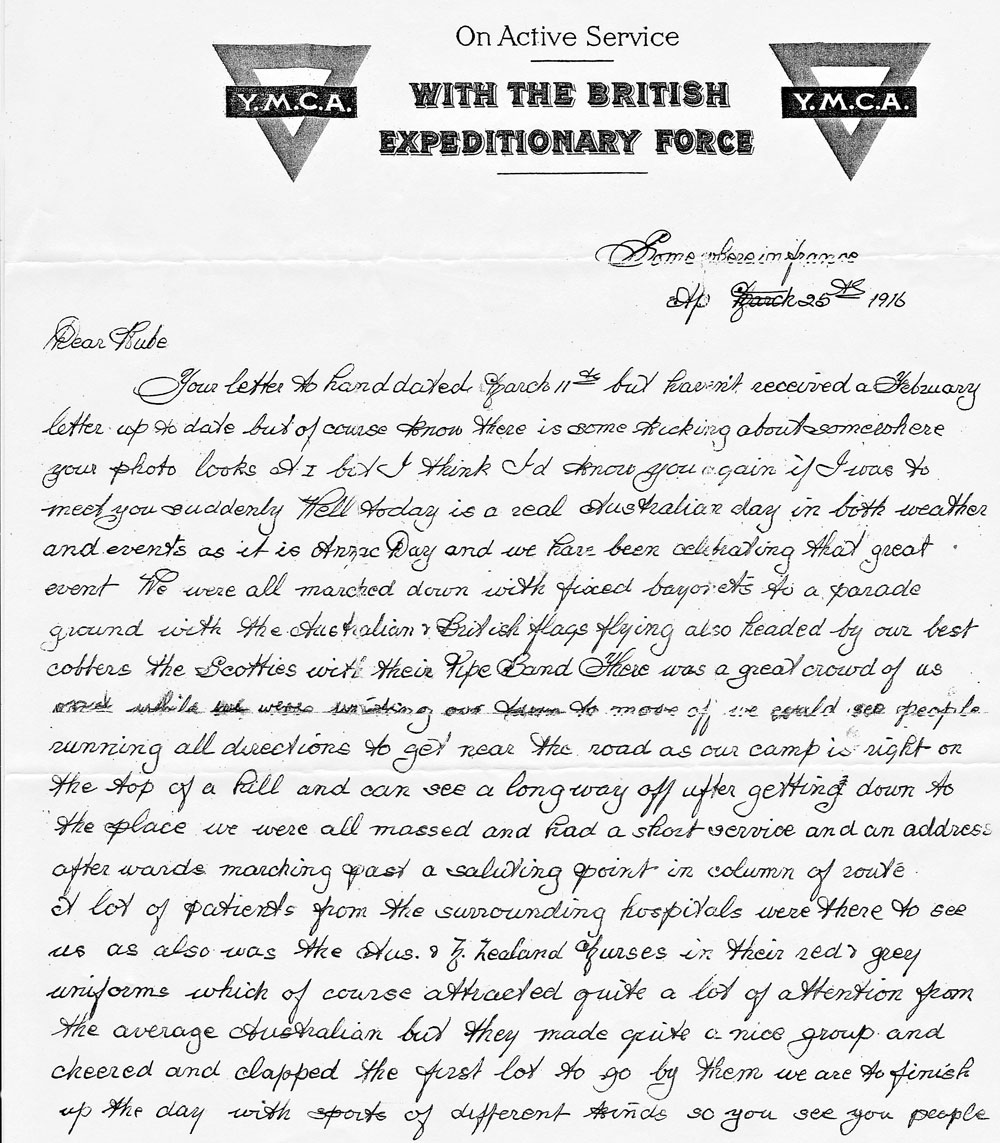 On Active Service
Y.M.C.A. WITH THE BRITISH Y.M.C.A.
EXPEDITIONARY FORCE
Somewhere in france
Ap March 25th 1916
Dear Rube
Your letter to hand dated March 11th but haven't received a February
letter up to date but of course know there is some kicking about somewhere
your photo looks A I but I think I'd know you again if I was to
meet you suddenly Well today is a real Australian day in both weather
and events as it is Anzac Day and we have been celebrating that great
event We were all marched down with fixed bayonets to a parade
ground with the Australian & British flags flying also headed by our best
cobbers the Scotties with their Pipe Band There was a great crowd of us
and while we were waiting our turn to move off we could see people
running all directions to get near the road as our camp is right on
the top of a hill and can see a long way off after getting down to
the place we were all massed and had a short service and an address
after wards marching past a saluting point in column of route.
A lot of patients from the surrounding hospitals were there to see
us as also was the Aus. & N. Zealand Nurses in their red & grey
uniforms which of course attracted quite a lot of attention from
the average Australian but they made quite a nice group and
cheered and clapped the first lot to go by them we are to finish
up the day with sports of different kinds so you see you people